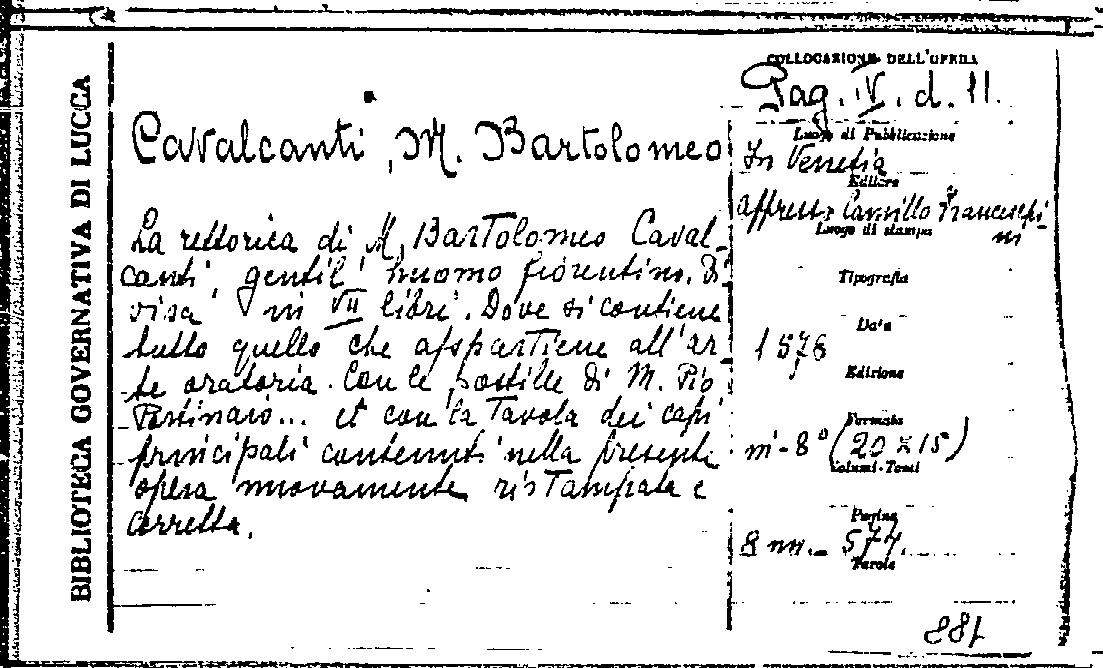 BIBLIOTECA GOVERNATIVA DI LUCCA
Cavalcanti, M. Bartolomeo
La rettorica di M. Bartolomeo Caval-
canti, gentil' huomo fiorentino. Di
visa in VII libri. Dove si contiene
tutto quello che appartiene all'ar-
te oratoria. Con le postille di M. Pio
Portinaio... et con la Tavola dei capi
principali contenuti nella presente
opera nuovamente ristampata e
corretta.
COLLOCAZIONE DELL'OPERA
Pag. IV. d. 11.
Luogo di Pubblicazione
In Venetia
Editore
appresso Camillo Franceschi
ni
Luogo di stampa
Tipografia
Data
1578
Edizione
Formato
in-8° (20x15)
Volumi-Tomi
Pagine
8 nn. - 577.
Tavole
881